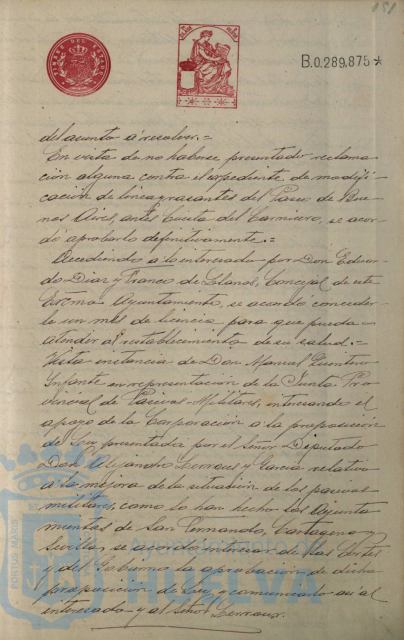 151
TIMBRE DEL ESTADO
B.0.289,875*
del asunto a resolver.=
En vista de no haberse presentado reclama-
ción alguna contra el expediente de modifi-
cación de lineas y rasantes del Paseo de Bue-
nos Aires, antes Cuesta del Carnicero, se acor-
dó aprobarlo definitivamente.=
Accediendo a lo interesado por Don Eduar-
do Diaz y Franco de Llanos, Concejal de este
Excmo. Ayuntamiento, se acordó conceder-
le un mes de licencia para que pueda
atender al restablecimiento de su salud.=
Vista instancia de Don Manuel
Infante en representación de la Junta Pro-
vincial de Pasivos-Militares, interesando el
apoyo de la Corporación a la proposición
de Ley presentada por el Señor Diputado
Don Alejandro Lerroux y Garcia relativo
a la mejora de la situación de los pasivos
militares, como lo han hecho los Ayunta-
mientos de San Fernando, Cartagena y
Sevilla, se acordó interesar de las Cortes
y del Gobierno la aprobación de dicha
proposición de Ley, y comunicarlo asi al
interesado y al Señor Lerroux.
Ayuntamiento de
HUELVA
PORTUS MARIS